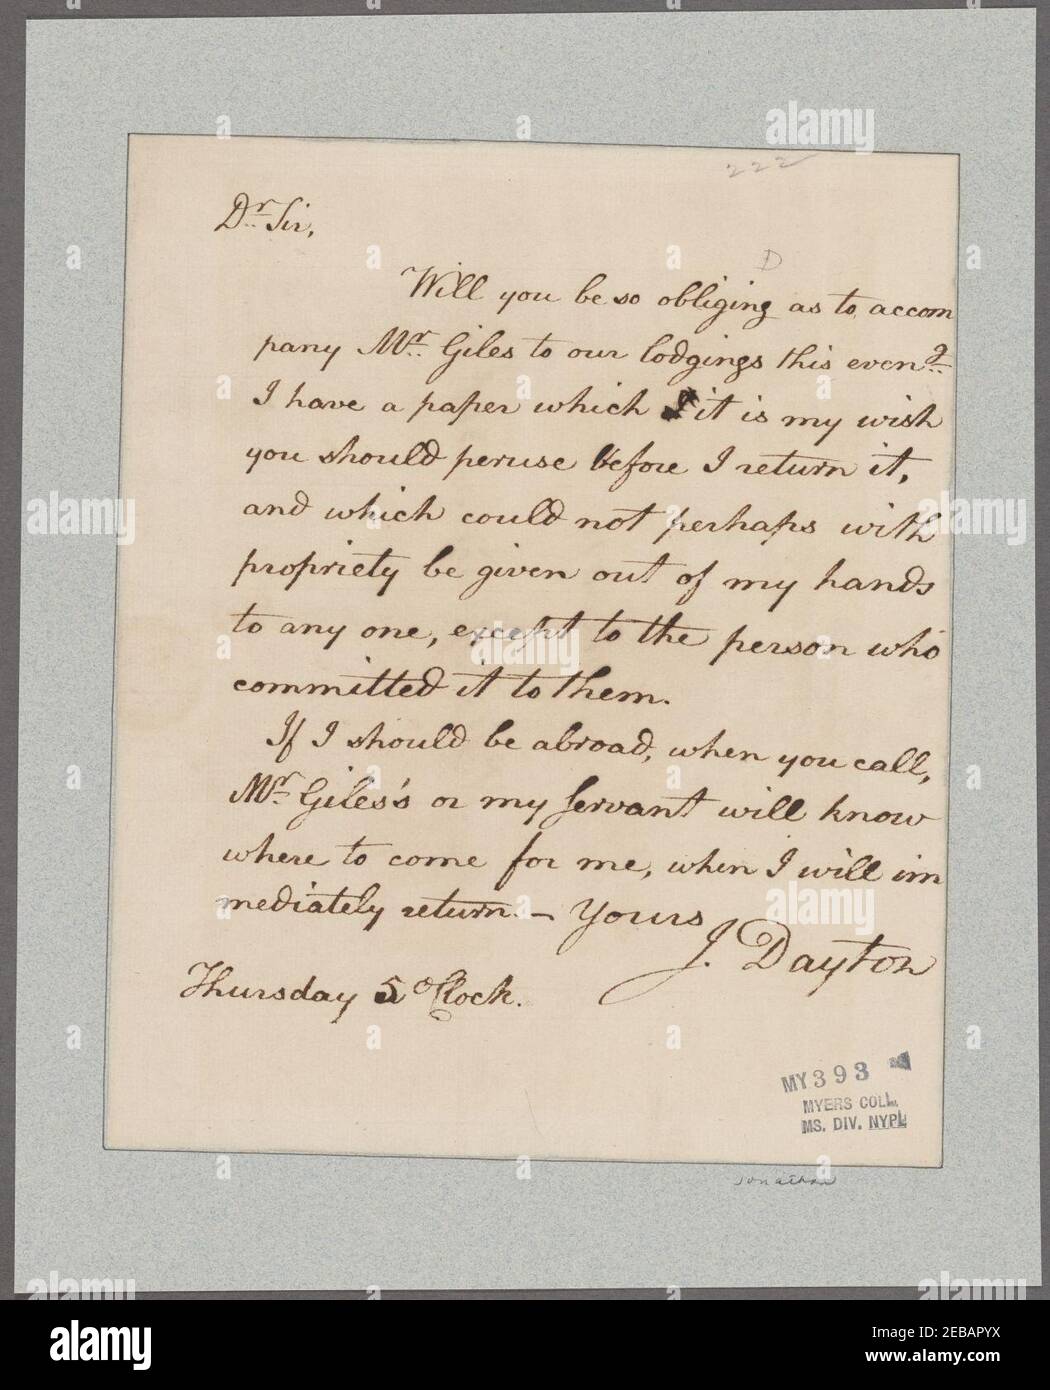 222
Dr. Sir,
D
Will you be so obliging as to accom
pany Mr. Giles to our lodgings this eveng.
I have a paper which it is my wish
you should peruse before I return it,
and which could not perhaps with
propriety be given out of my hands
to any one, except to the person who
committed it to them.
If I should be abroad, when you call,
Mr. Giles's or my servant will know
where to come for me, when I will im
mediately return. — Yours
J. Dayton
Thursday 5 oClock.
MY393
MYERS COLL.
MS. DIV. NYPL
Jonathan
alamy
Image ID: 2EBAPYX
www.alamy.com